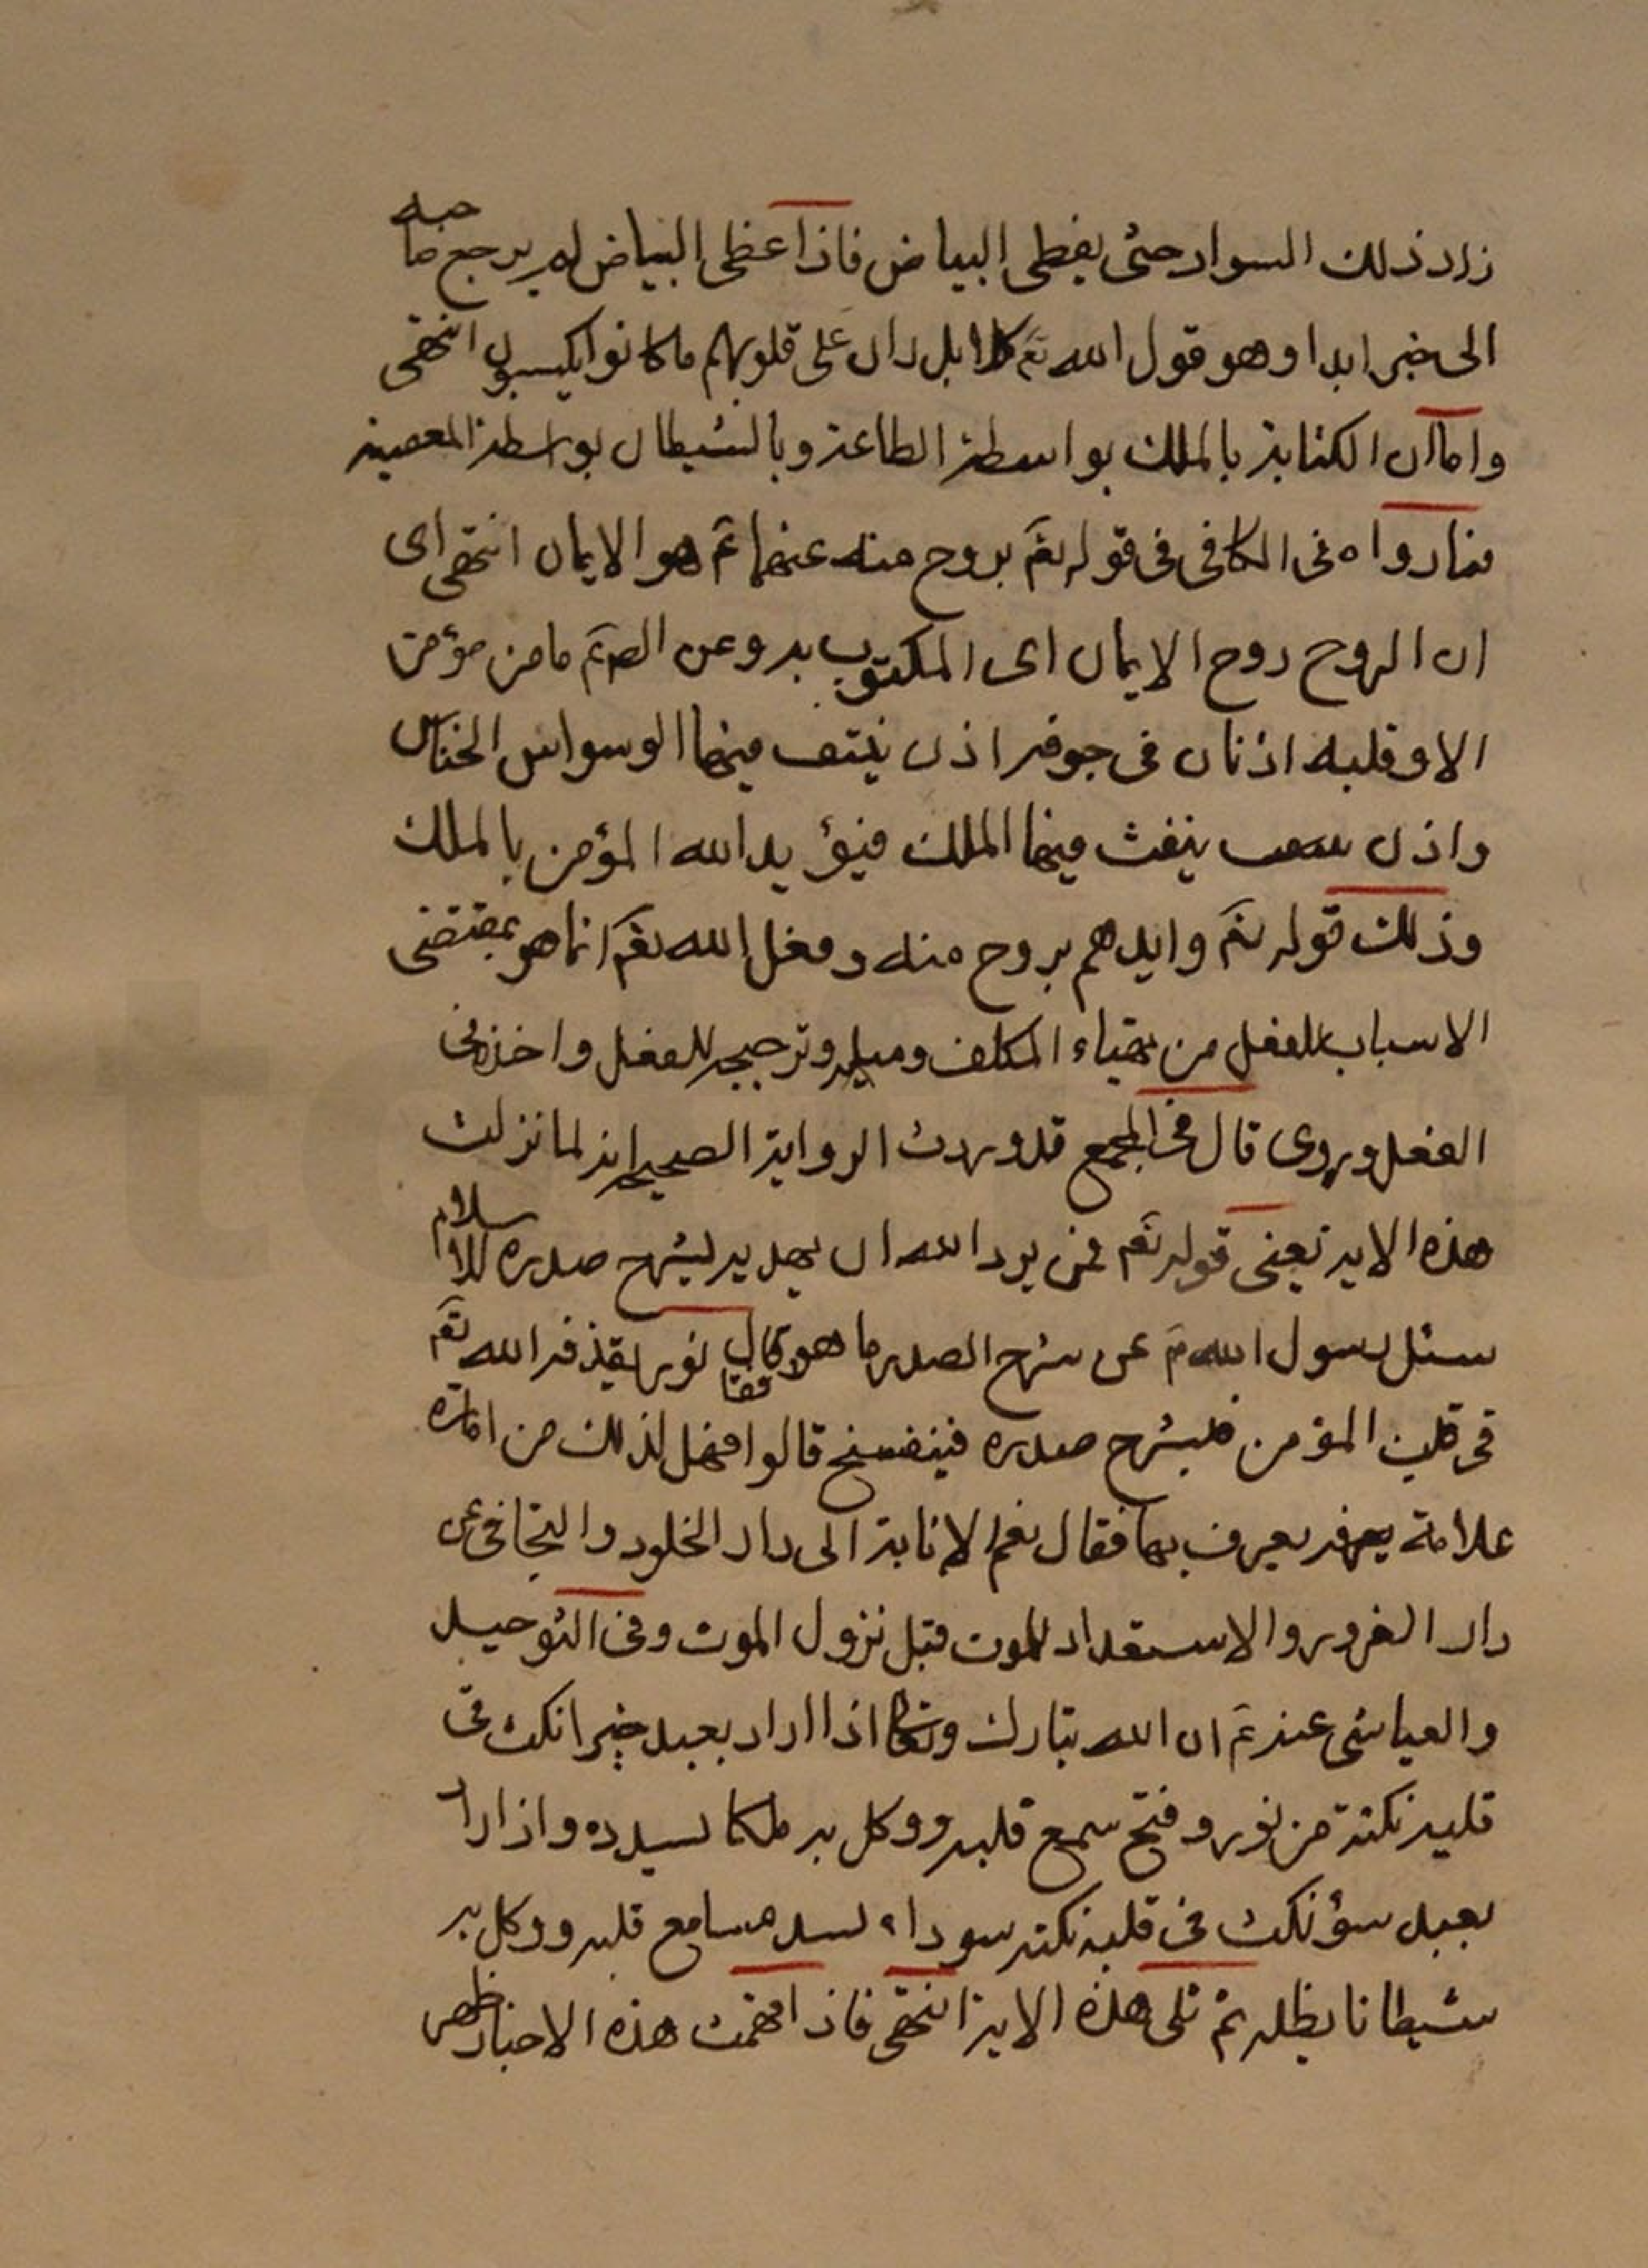 زاد ذلك السواد حتى يغطى البياض فاذا غطى البياض لم يرجع صاحبه
الى خير ابدا وهو قول الله تع كلا بل ران على قلوبهم ما كانوا يكسبون انتهى
واما ان الكتابة بالملك بواسطة الطاعة وبالشيطان بواسطة المعصية
فما رواه فى الكافى فى قوله تع بروح منه عنهما ع هو الايمان انتهى اى
ان الروح روح الايمان اى المكتوب به وعن الص ع ما من مؤمن
الا وقلبه اذنان فى جوفه اذن ينفث فيها الوسواس الخناس
واذن ينفث فيها الملك فيؤيد الله المؤمن بالملك
وذلك قوله تع وايدهم بروح منه وفعل الله تع انما هو بمقتضى
الاسباب للفعل من تهياء المكلف وميله وترجيحه للفعل واخذه فى
الفعل وروى قال فى المجمع قد وردت الرواية الصحيحة انه لما نزلت
هذه الاية يعنى قوله تع فمن يرد الله ان يهديه يشرح صدره للاسلام
سئل رسول الله ص عن شرح الصدر ما هو فقال نور يقذفه الله تع
فى قلب المؤمن فيشرح صدره فينفسح قالوا فهل لذلك من امارة
علامة يعرف بها فقال نعم الانابة الى دار الخلود والتجافى عن
دار الغرور والاستعداد للموت قبل نزول الموت وفى التوحيد
والعياشى عنه ع ان الله تبارك وتعالى اذا اراد بعبد خيرا نكت فى
قلبه نكتة من نور وفتح سمع قلبه ووكل به ملكا يسدده واذا اراد
بعبد سوؤ نكت فى قلبه نكتة سوداء يسد مسامع قلبه ووكل به
شيطانا يظله ثم تلى هذه الاية انتهى فاذا فهمت هذه الاخبار ظهر